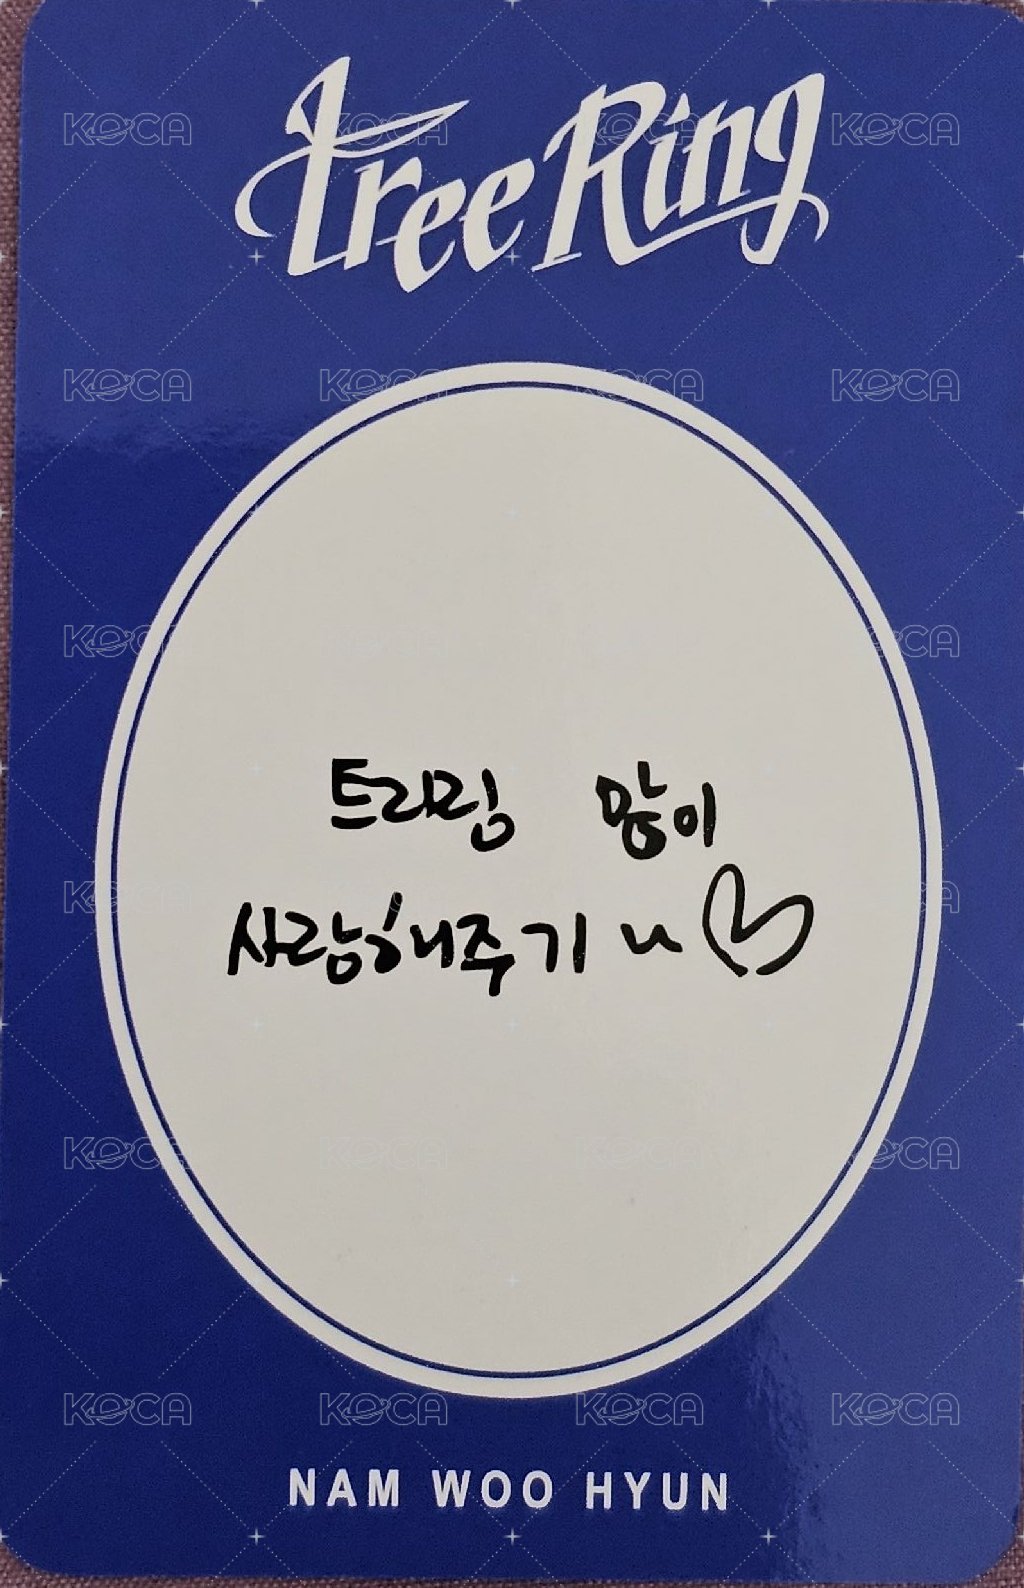 Tree Ring
트리링 많이
사랑해주기 ~ ♡
NAM WOO HYUN
KOCA